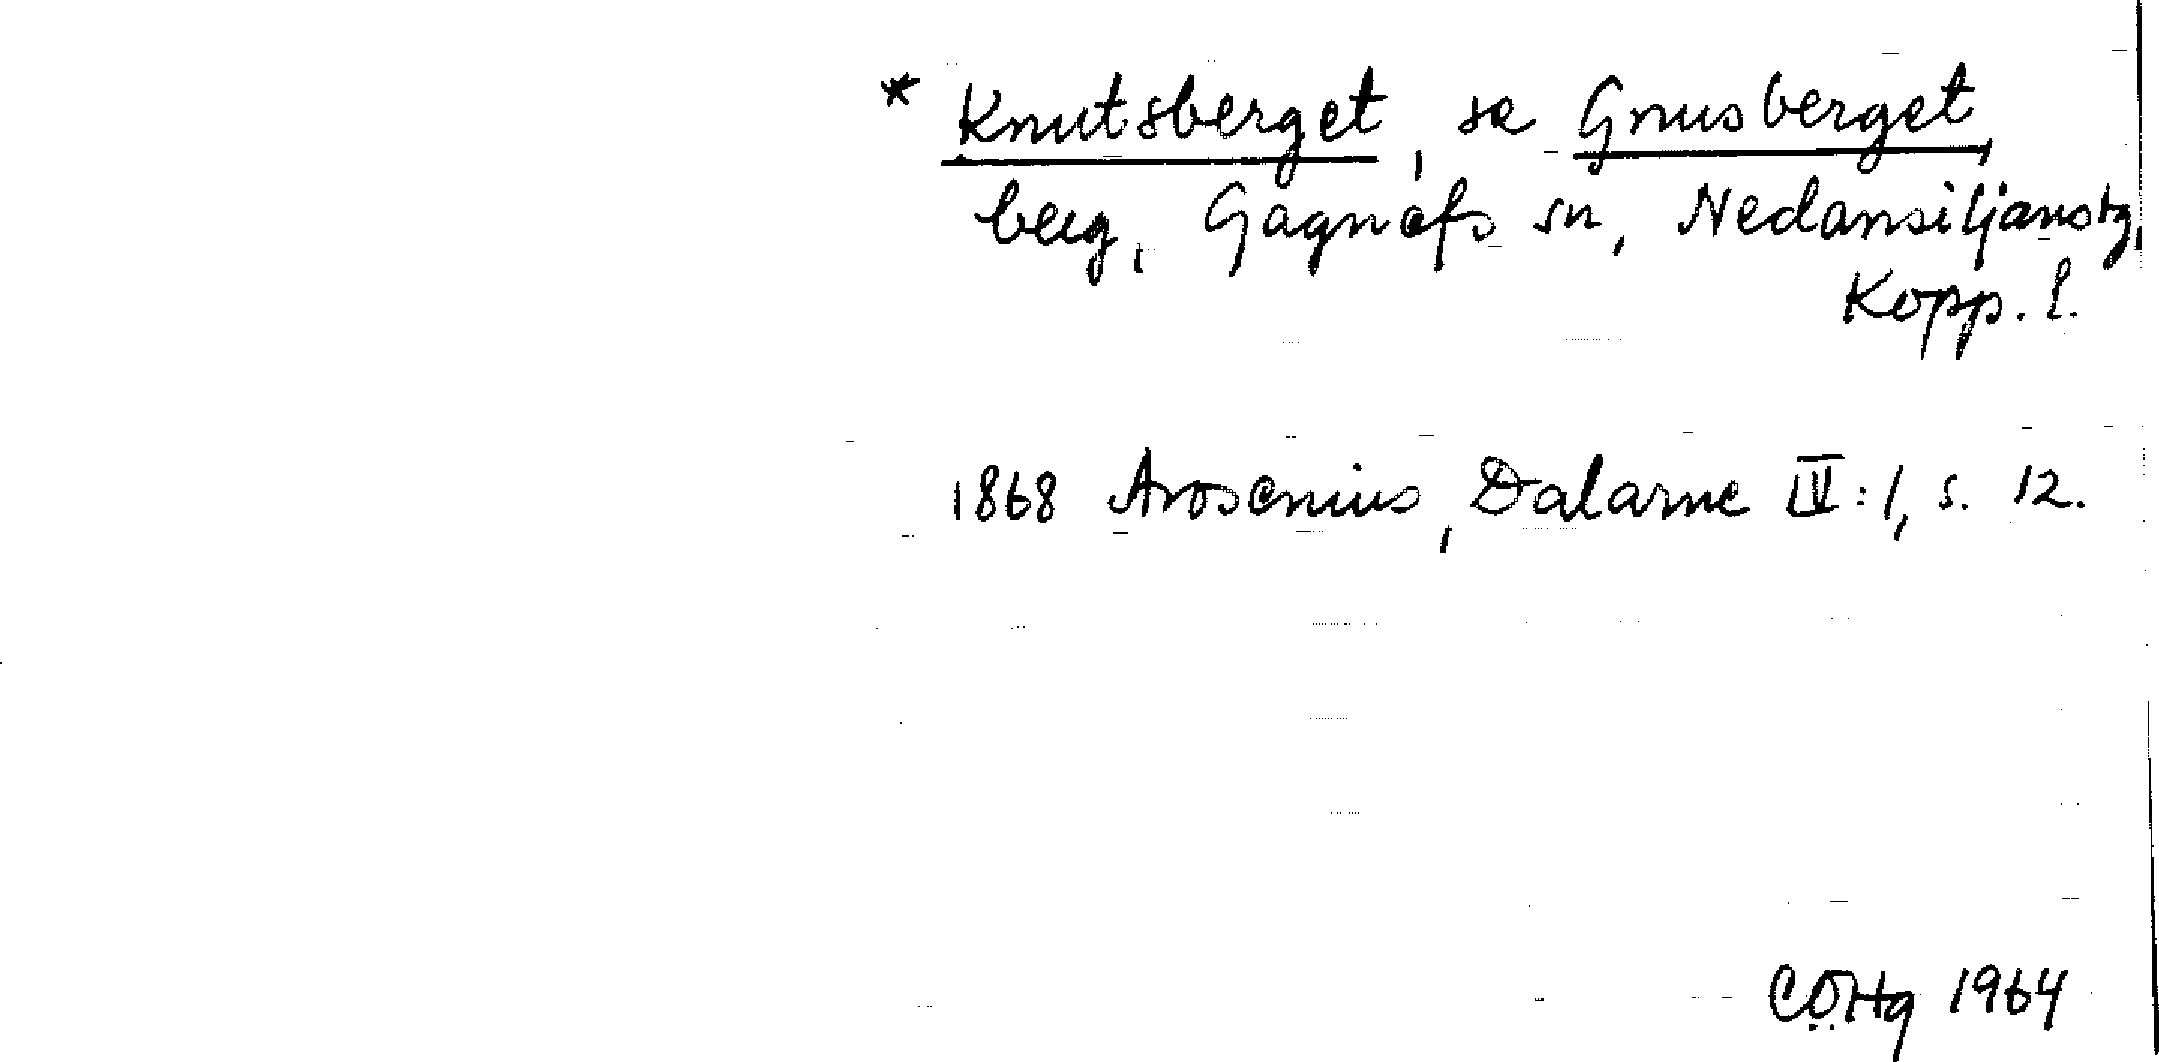 * Knutsberget, se Gnusberget,
berg, Gagnefs sn, Nedansiljanstg,
Kopp. l.
1868 Arosenius, Dalarne IV:1, s. 12.
CÖHg 1964